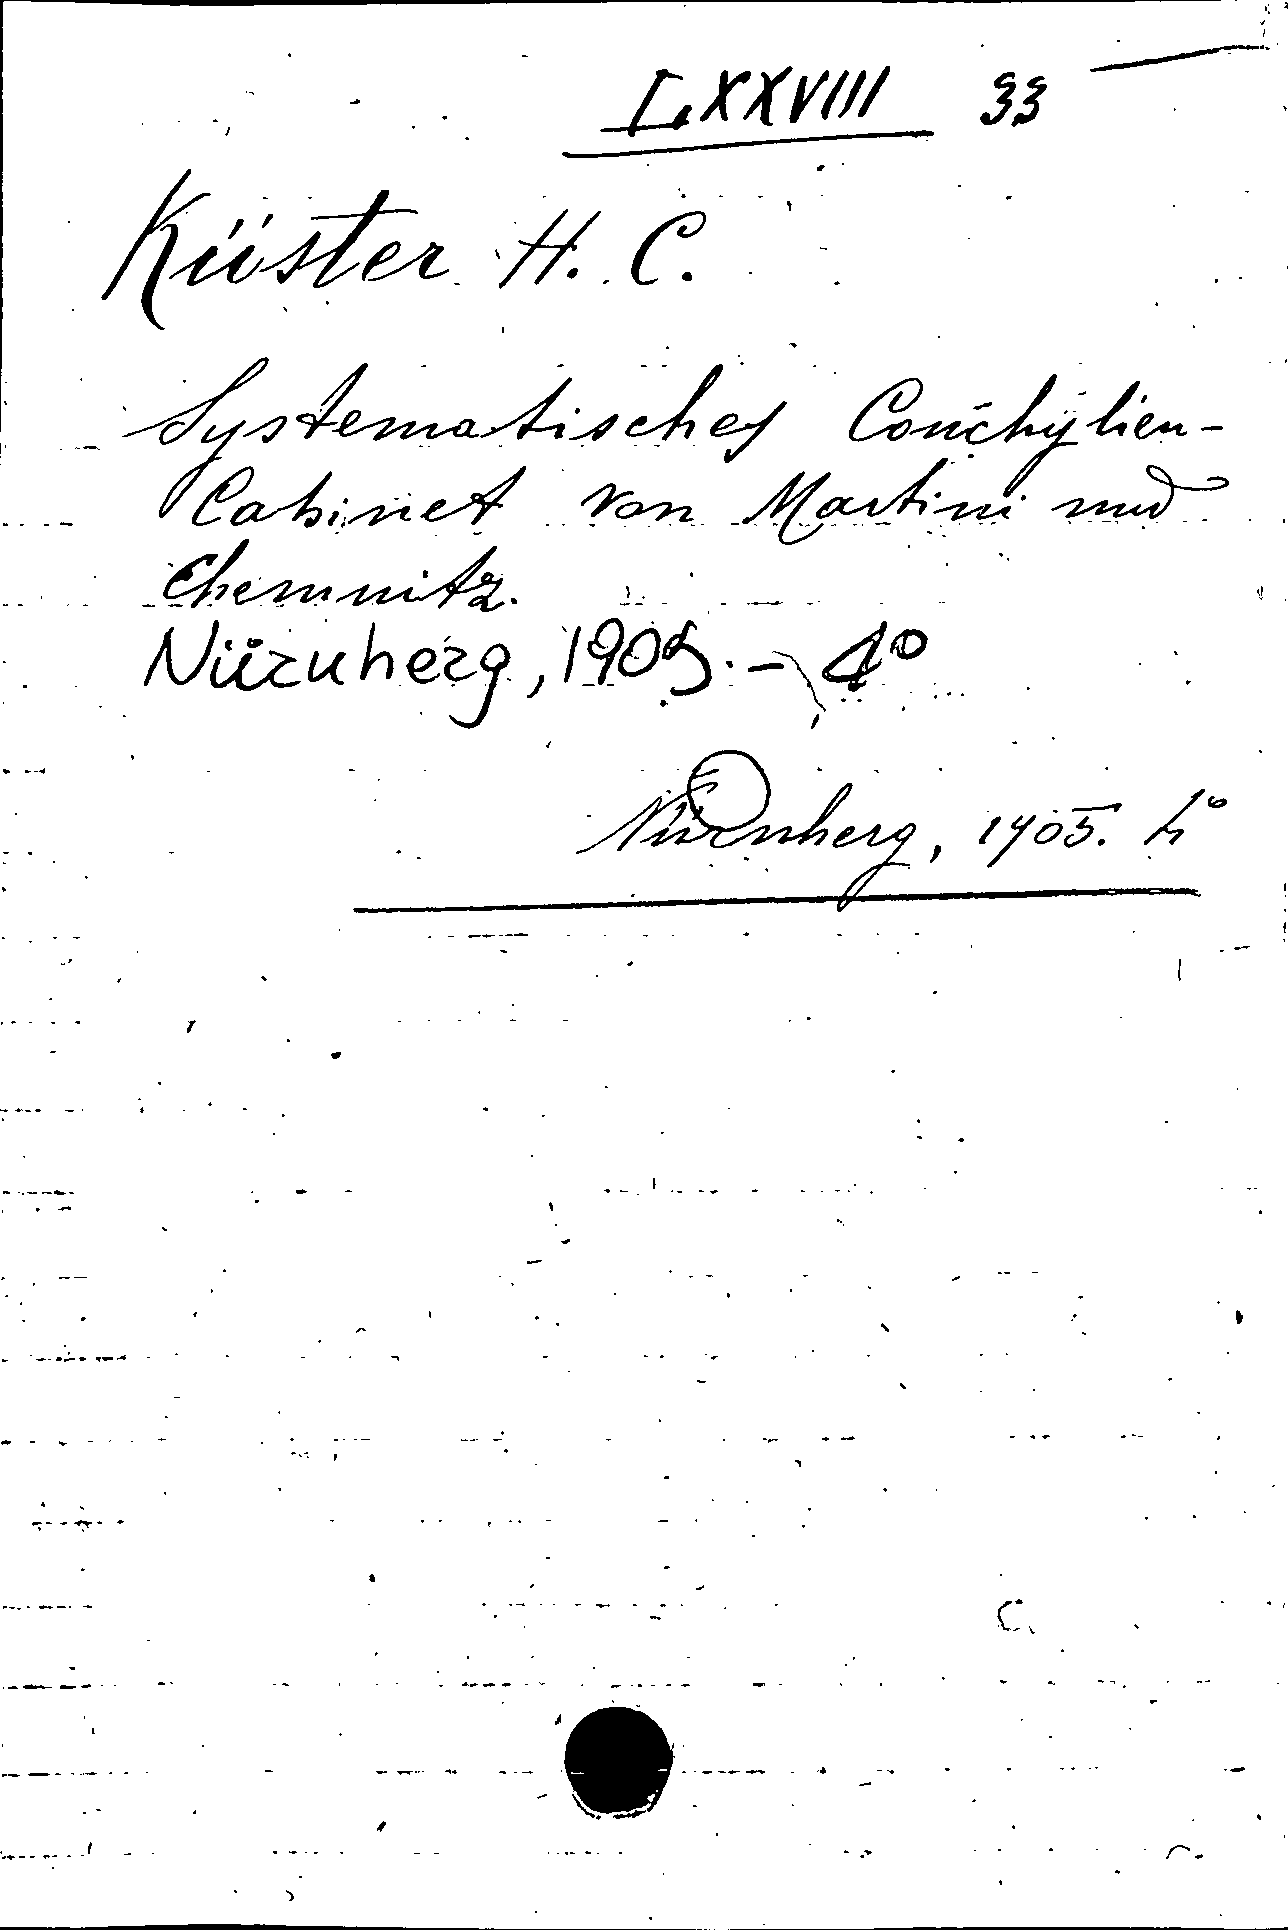 LXXVIII 33
Küster H. C.
Systematisches Conchylien-
Cabinet von Martini und
Chemnitz.
Nürnberg, 1905. - 4°
Nürnberg, 1905. 4°